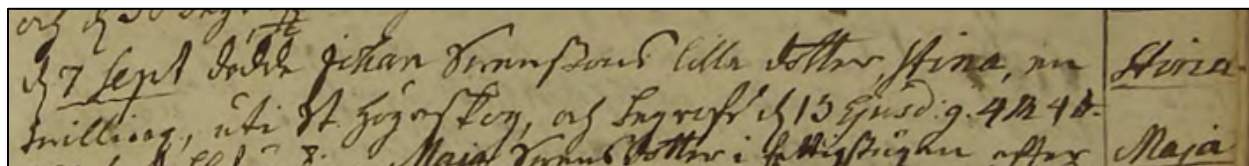 och d 30 begr.
d 7 Sept dödde Johan Svenssons lilla dotter, Stina, en Stina.
tvilling, uti St. Högeskog, och begrofs d 13 Ejusd: g. 4 M 4 d.
Maja Svens dotter i fattigstugan efter Maja